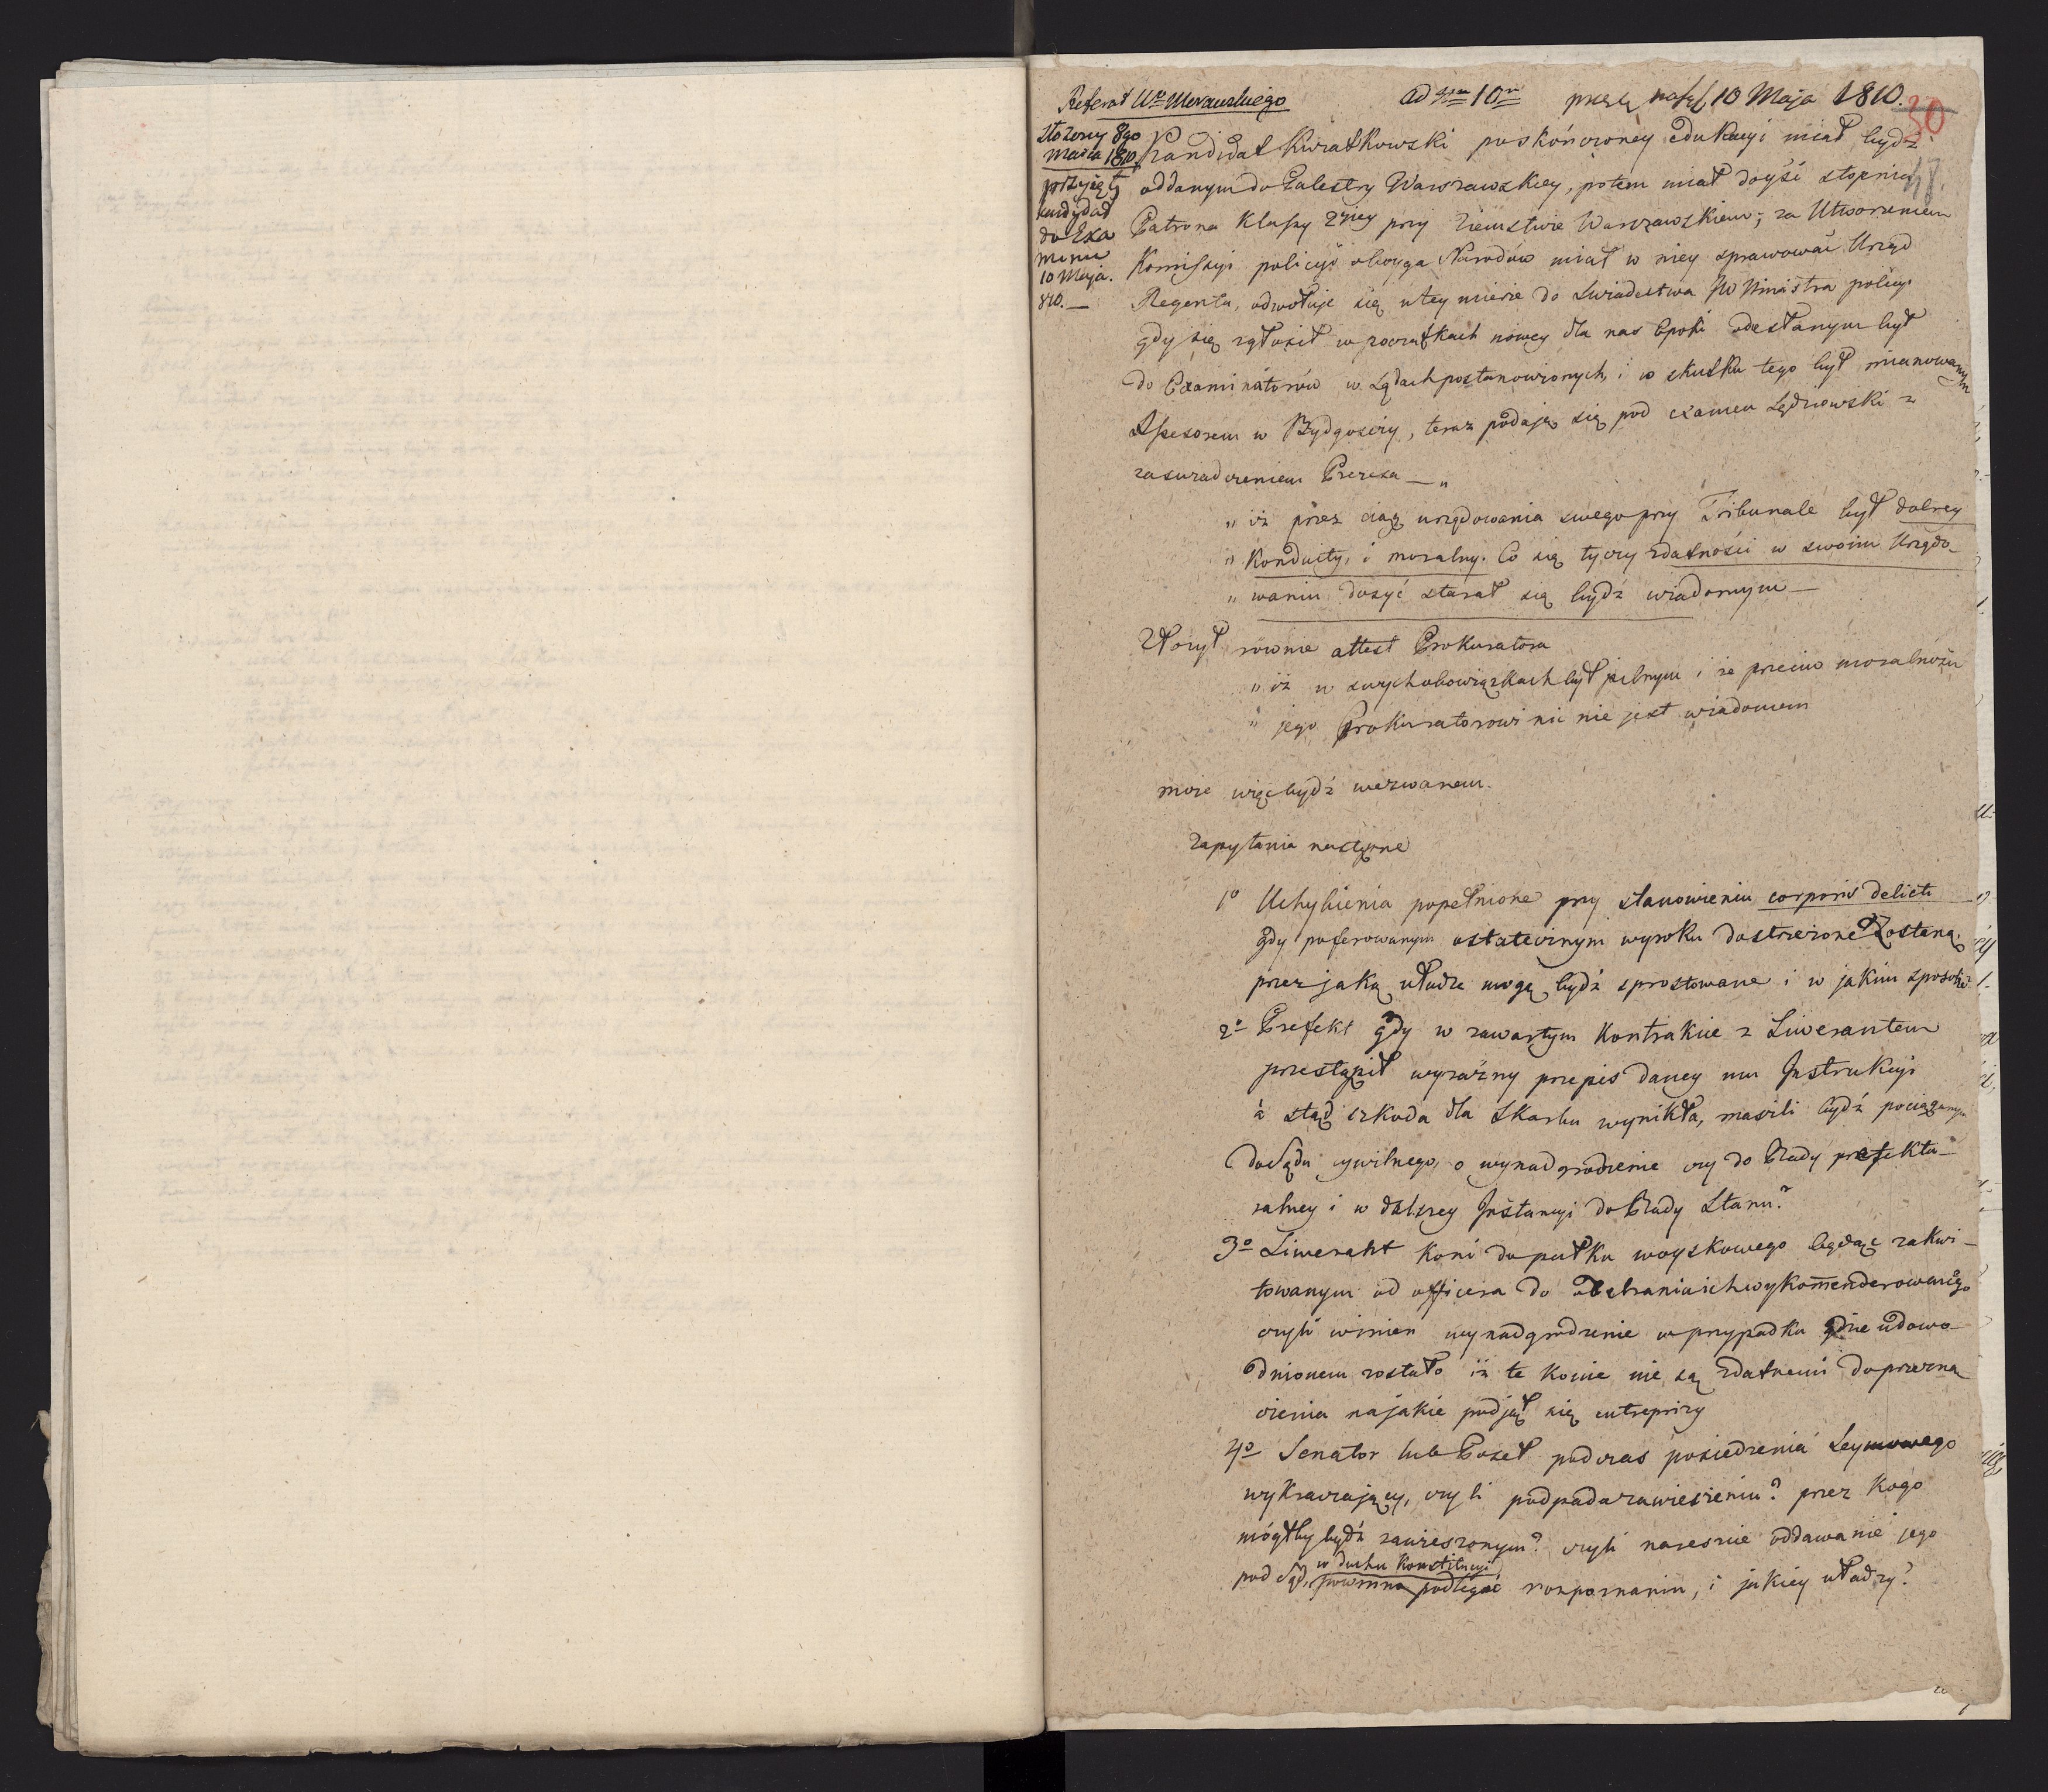 Referat Wo Morawskiego
ad num 10m
10 Maja 1810.
30
48.
złożony 8go
Marca 1810
przyjęty
kandydat
do Exa
minu
10 Maja.
810. —
Kandidat Kwiatkowski poskończoney Edukacyi miał bydź
oddanym do Palestry Warszawskiey, potem miał doyść stopnia
Patrona Klassy 2giey przy Ziemstwie Warszawskiem; za Utworzeniem
Komissyi policyi oboyga Narodów miał w niey sprawować Urząd
Regenta, odwołuje się w tey mierze do Swiadectwa JW Ministra policyi
gdy się zgłosił w początkach nowey dla nas Epoki odesłanym był
do Examinatorów w Sądach postanowionych, i w skutku tego był mianowanym
Assesorem w Bydgoszczy, teraz podaje się pod examen Sędziowski z
zaswiadczeniem Prezesa — „
„ iż przez ciąg urzędowania swego przy Tribunale był dobrey
„ Konduity, i moralny. Co się tyczy zdatności w swoim Urzędo-
„ waniu dosyć starał się bydź wiadomym —
Złożył równie attest Prokuratora
„ iż w swych obowiązkach był pilnym i że przeciw moralności
„ jego Prokuratorowi nic nie jest wiadomem
może więc bydź wezwanem.
Zapytania następne
1o Uchybienia popełnione przy stanowieniu corporis delicti
gdy po ferowanym ostatecznym wyroku dostrzeżone Zostaną,
przez jaką władze mogą bydź sprostowane i w jakim sposobie
2o Prefekt gdy w zawartym Kontrakcie z Liwerantem
przestąpił wyraźny przepis daney mu Instrukcyi
a stąd szkoda dla Skarbu wynikła, maszli bydź pociąganym
do Sądu cywilnego, o wynadgrodzenie czy do Rady prefektu-
ralney i w dalszey Instancyi do Rady Stanu?
3o Liwerant koni do pułku woyskowego będąc zakwi-
towanym od officera do odebrania ich wykomenderowanego
czyli winien wynadgrodzenie w przypadku gdzie udowo-
dnionem zostało iż te konie nie są zdatnemi do przezna
czenia na jakie podjął się entreprizy
4o Senator lub Poseł podczas posiedzenia Seymowego
wykraczający, czyli podpada zawieszeniu? przez kogo
mógłby bydź zawieszonym? czyli nareszcie oddawanie jego
pod Sąd, w duchu Konstitucyi
powinno podlegać rozpoznaniu, i jakiey władzy?